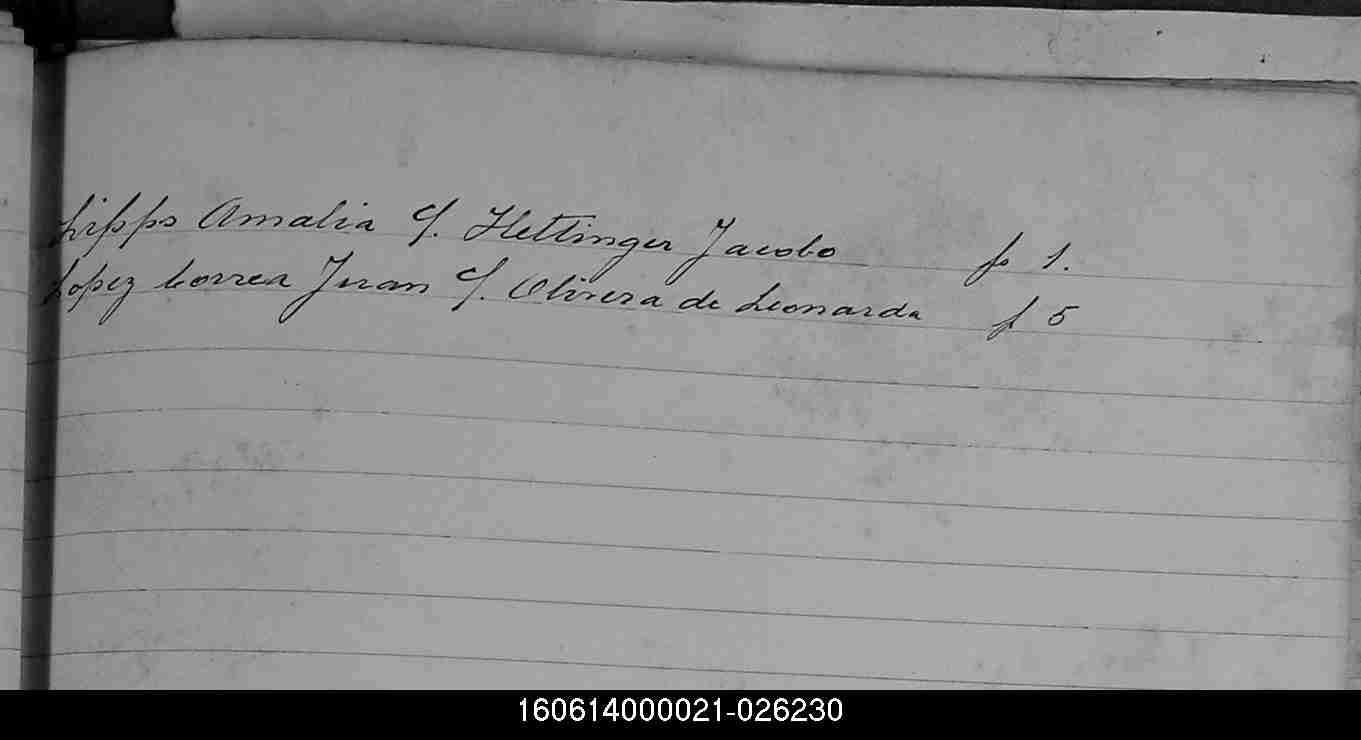 Lipps Amalia C/. Hettinger Jacobo fs 1.
Lopez Correa Juan C/. Olivera de Leonarda f 5
160614000021-026230